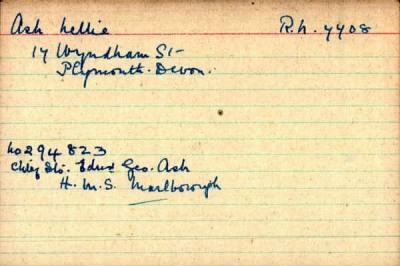 Ash Nellie R.N. 7708
17 Wyndham St-
Plymouth. Devon.
No 294823
Chief Sto. Edwd Geo. Ash
H.M.S. Marlborough